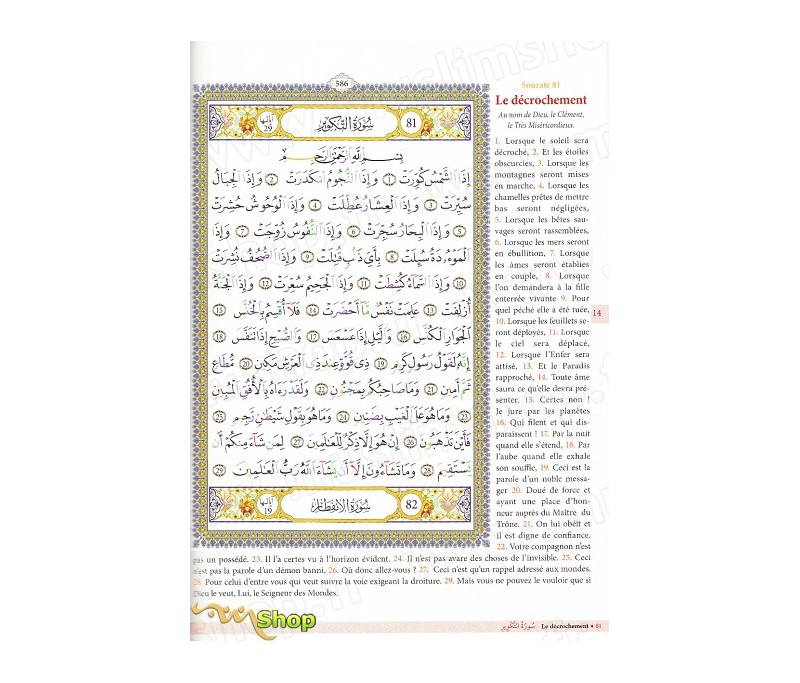 586
آياتها 29
سُورَةُ التَّكْوِيرِ
81
بِسْمِ اللَّهِ الرَّحْمَٰنِ الرَّحِيمِ
إِذَا الشَّمْسُ كُوِّرَتْ 1 وَإِذَا النُّجُومُ انْكَدَرَتْ 2 وَإِذَا الْجِبَالُ
سُيِّرَتْ 3 وَإِذَا الْعِشَارُ عُطِّلَتْ 4 وَإِذَا الْوُحُوشُ حُشِرَتْ
5 وَإِذَا الْبِحَارُ سُجِّرَتْ 6 وَإِذَا النُّفُوسُ زُوِّجَتْ 7 وَإِذَا
الْمَوْءُۥدَةُ سُئِلَتْ 8 بِأَيِّ ذَنْبٍ قُتِلَتْ 9 وَإِذَا الصُّحُفُ نُشِرَتْ
10 وَإِذَا السَّمَاءُ كُشِطَتْ 11 وَإِذَا الْجَحِيمُ سُعِّرَتْ 12 وَإِذَا الْجَنَّةُ
أُزْلِفَتْ 13 عَلِمَتْ نَفْسٌ مَّا أَحْضَرَتْ 14 فَلَا أُقْسِمُ بِالْخُنَّسِ 15
الْجَوَارِ الْكُنَّسِ 16 وَاللَّيْلِ إِذَا عَسْعَسَ 17 وَالصُّبْحِ إِذَا تَنَفَّسَ 18
إِنَّهُ لَقَوْلُ رَسُولٍ كَرِيمٍ 19 ذِي قُوَّةٍ عِنْدَ ذِي الْعَرْشِ مَكِينٍ 20 مُّطَاعٍ
ثَمَّ أَمِينٍ 21 وَمَا صَاحِبُكُمْ بِمَجْنُونٍ 22 وَلَقَدْ رَآهُ بِالْأُفُقِ الْمُبِينِ
23 وَمَا هُوَ عَلَى الْغَيْبِ بِضَنِينٍ 24 وَمَا هُوَ بِقَوْلِ شَيْطَٰنٍ رَّجِيمٍ 25
فَأَيْنَ تَذْهَبُونَ 26 إِنْ هُوَ إِلَّا ذِكْرٌ لِّلْعَالَمِينَ 27 لِمَنْ شَاءَ مِنْكُمْ أَنْ
يَسْتَقِيمَ 28 وَمَا تَشَاءُونَ إِلَّا أَنْ يَشَاءَ اللَّهُ رَبُّ الْعَالَمِينَ 29
آياتها 19
سُورَةُ الِانْفِطَارِ
82
Sourate 81
Le décrochement
Au nom de Dieu, le Clément,
le Très Miséricordieux.
1. Lorsque le soleil sera
décroché, 2. Et les étoiles
obscurcies, 3. Lorsque les
montagnes seront mises
en marche, 4. Lorsque les
chamelles prêtes de mettre
bas seront négligées,
5. Lorsque les bêtes sau-
vages seront rassemblées,
6. Lorsque les mers seront
en ébullition, 7. Lorsque
les âmes seront établies
en couple, 8. Lorsque
l'on demandera à la fille
enterrée vivante 9. Pour
quel péché elle a été tuée,
10. Lorsque les feuillets se-
ront déployés, 11. Lorsque
le ciel sera déplacé,
12. Lorsque l'Enfer sera
attisé, 13. Et le Paradis
rapproché, 14. Toute âme
saura ce qu'elle devra pré-
senter. 15. Certes non !
Je jure par les planètes
16. Qui filent et qui dis-
paraissent ! 17. Par la nuit
quand elle s'étend, 18. Par
l'aube quand elle exhale
son souffle, 19. Ceci est la
parole d'un noble messa-
ger 20. Doué de force et
ayant une place d'hon-
neur auprès du Maître du
Trône. 21. On lui obéit et
il est digne de confiance.
22. Votre compagnon n'est
pas un possédé. 23. Il l'a certes vu à l'horizon évident. 24. Il n'est pas avare des choses de l'invisible. 25. Ceci
n'est pas la parole d'un démon banni, 26. Où donc allez-vous ? 27. Ceci n'est qu'un rappel adressé aux mondes.
28. Pour celui d'entre vous qui veut suivre la voie exigeant la droiture. 29. Mais vous ne pouvez le vouloir que si
Dieu le veut, Lui, le Seigneur des Mondes.
14
Shop
سُورَةُ التَّكْوِيرِ Le décrochement • 81